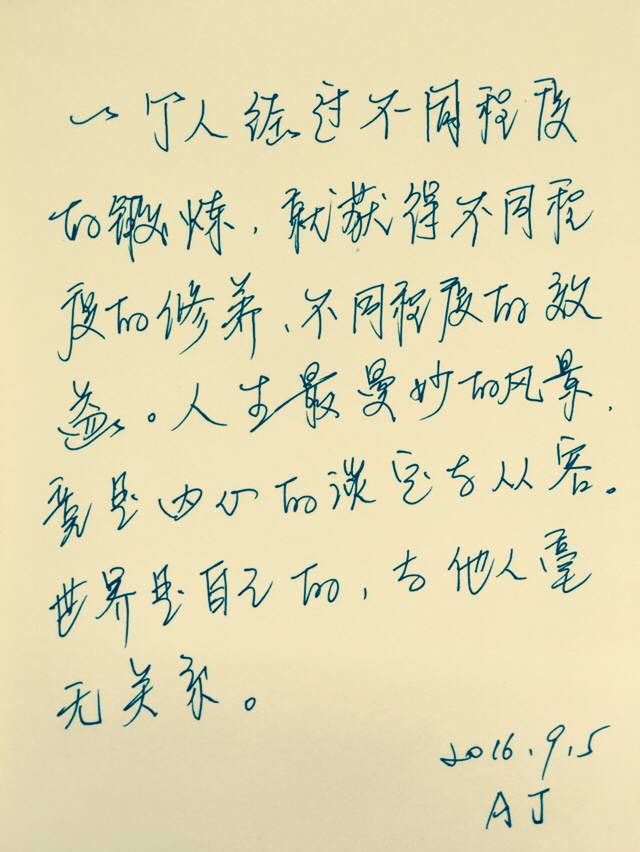 一个人经过不同程度
的锻炼，就获得不同程
度的修养、不同程度的效
益。人生最曼妙的风景，
竟是内心的淡定与从容。
世界是自己的，与他人毫
无关系。
2016.9.5
AJ